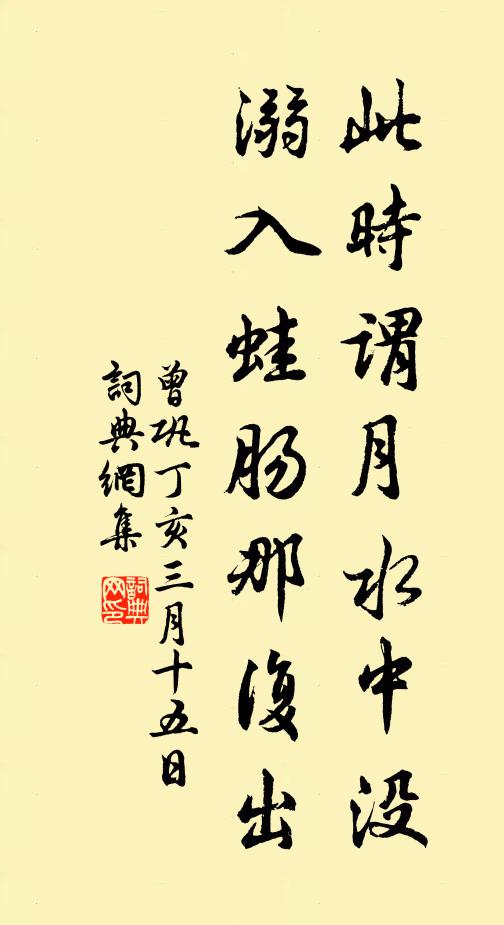 此時謂月水中没
溺入蛙肠那復出
曾巩丁亥三月十五日
詞典網集
詞典網印